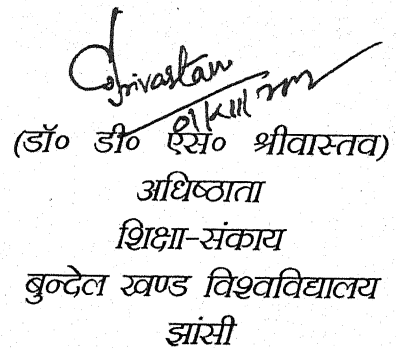 Srivastav
(डॉ० डी० एस० श्रीवास्तव)
अधिष्ठाता
शिक्षा-संकाय
बुन्देल खण्ड विश्वविद्यालय
झांसी